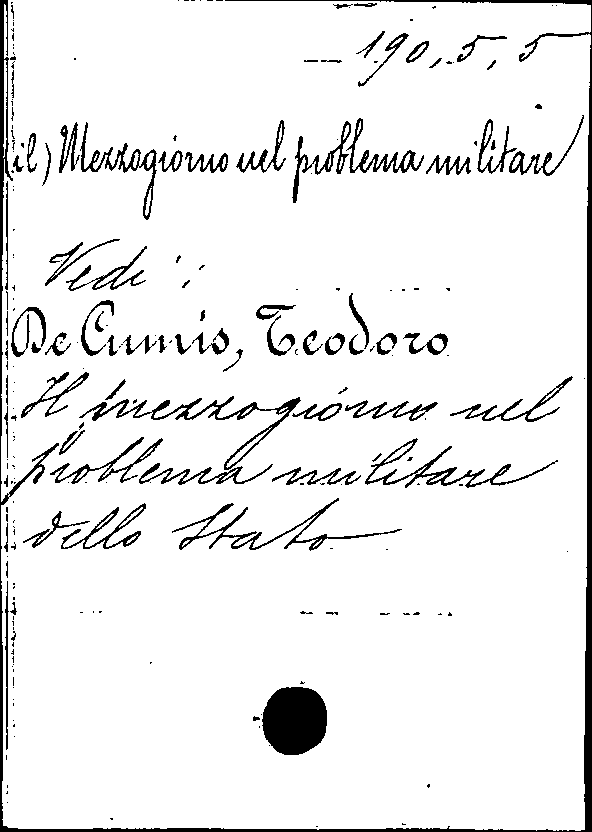 190,5,5
(il) Mezzogiorno nel problema militare
Vedi:
De Cumis, Teodoro
Il mezzogiorno nel
problema militare
dello Stato